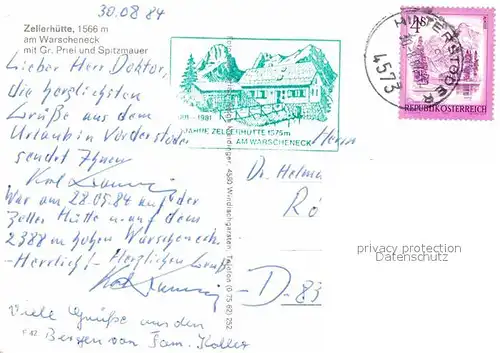 30.08.84
Zellerhütte, 1566 m
am Warscheneck
mit Gr. Priel und Spitzmauer
Lieber Herr Doktor,
die herzlichsten
Grüße aus dem
Urlaub in Vorderstoder
sendet Ihnen
Karl
War am 28.05.84 auf der
Zeller Hütte u. auf dem
2388 m hohen Warscheneck.
-Herrlich!- Herzlichen Gruß
Karl
Viele Grüße aus den
Bergen von Fam. Koller
1981
JAHRE ZELLERHÜTTE 1575m
AM WARSCHENECK
4580 Windischgarsten, Telefon (0 75 62) 252
4S
HINTERSTODER
4573
REPUBLIK ÖSTERREICH
Herrn
Dr. Helmu
Rö
D-83
privacy protection
Datenschutz